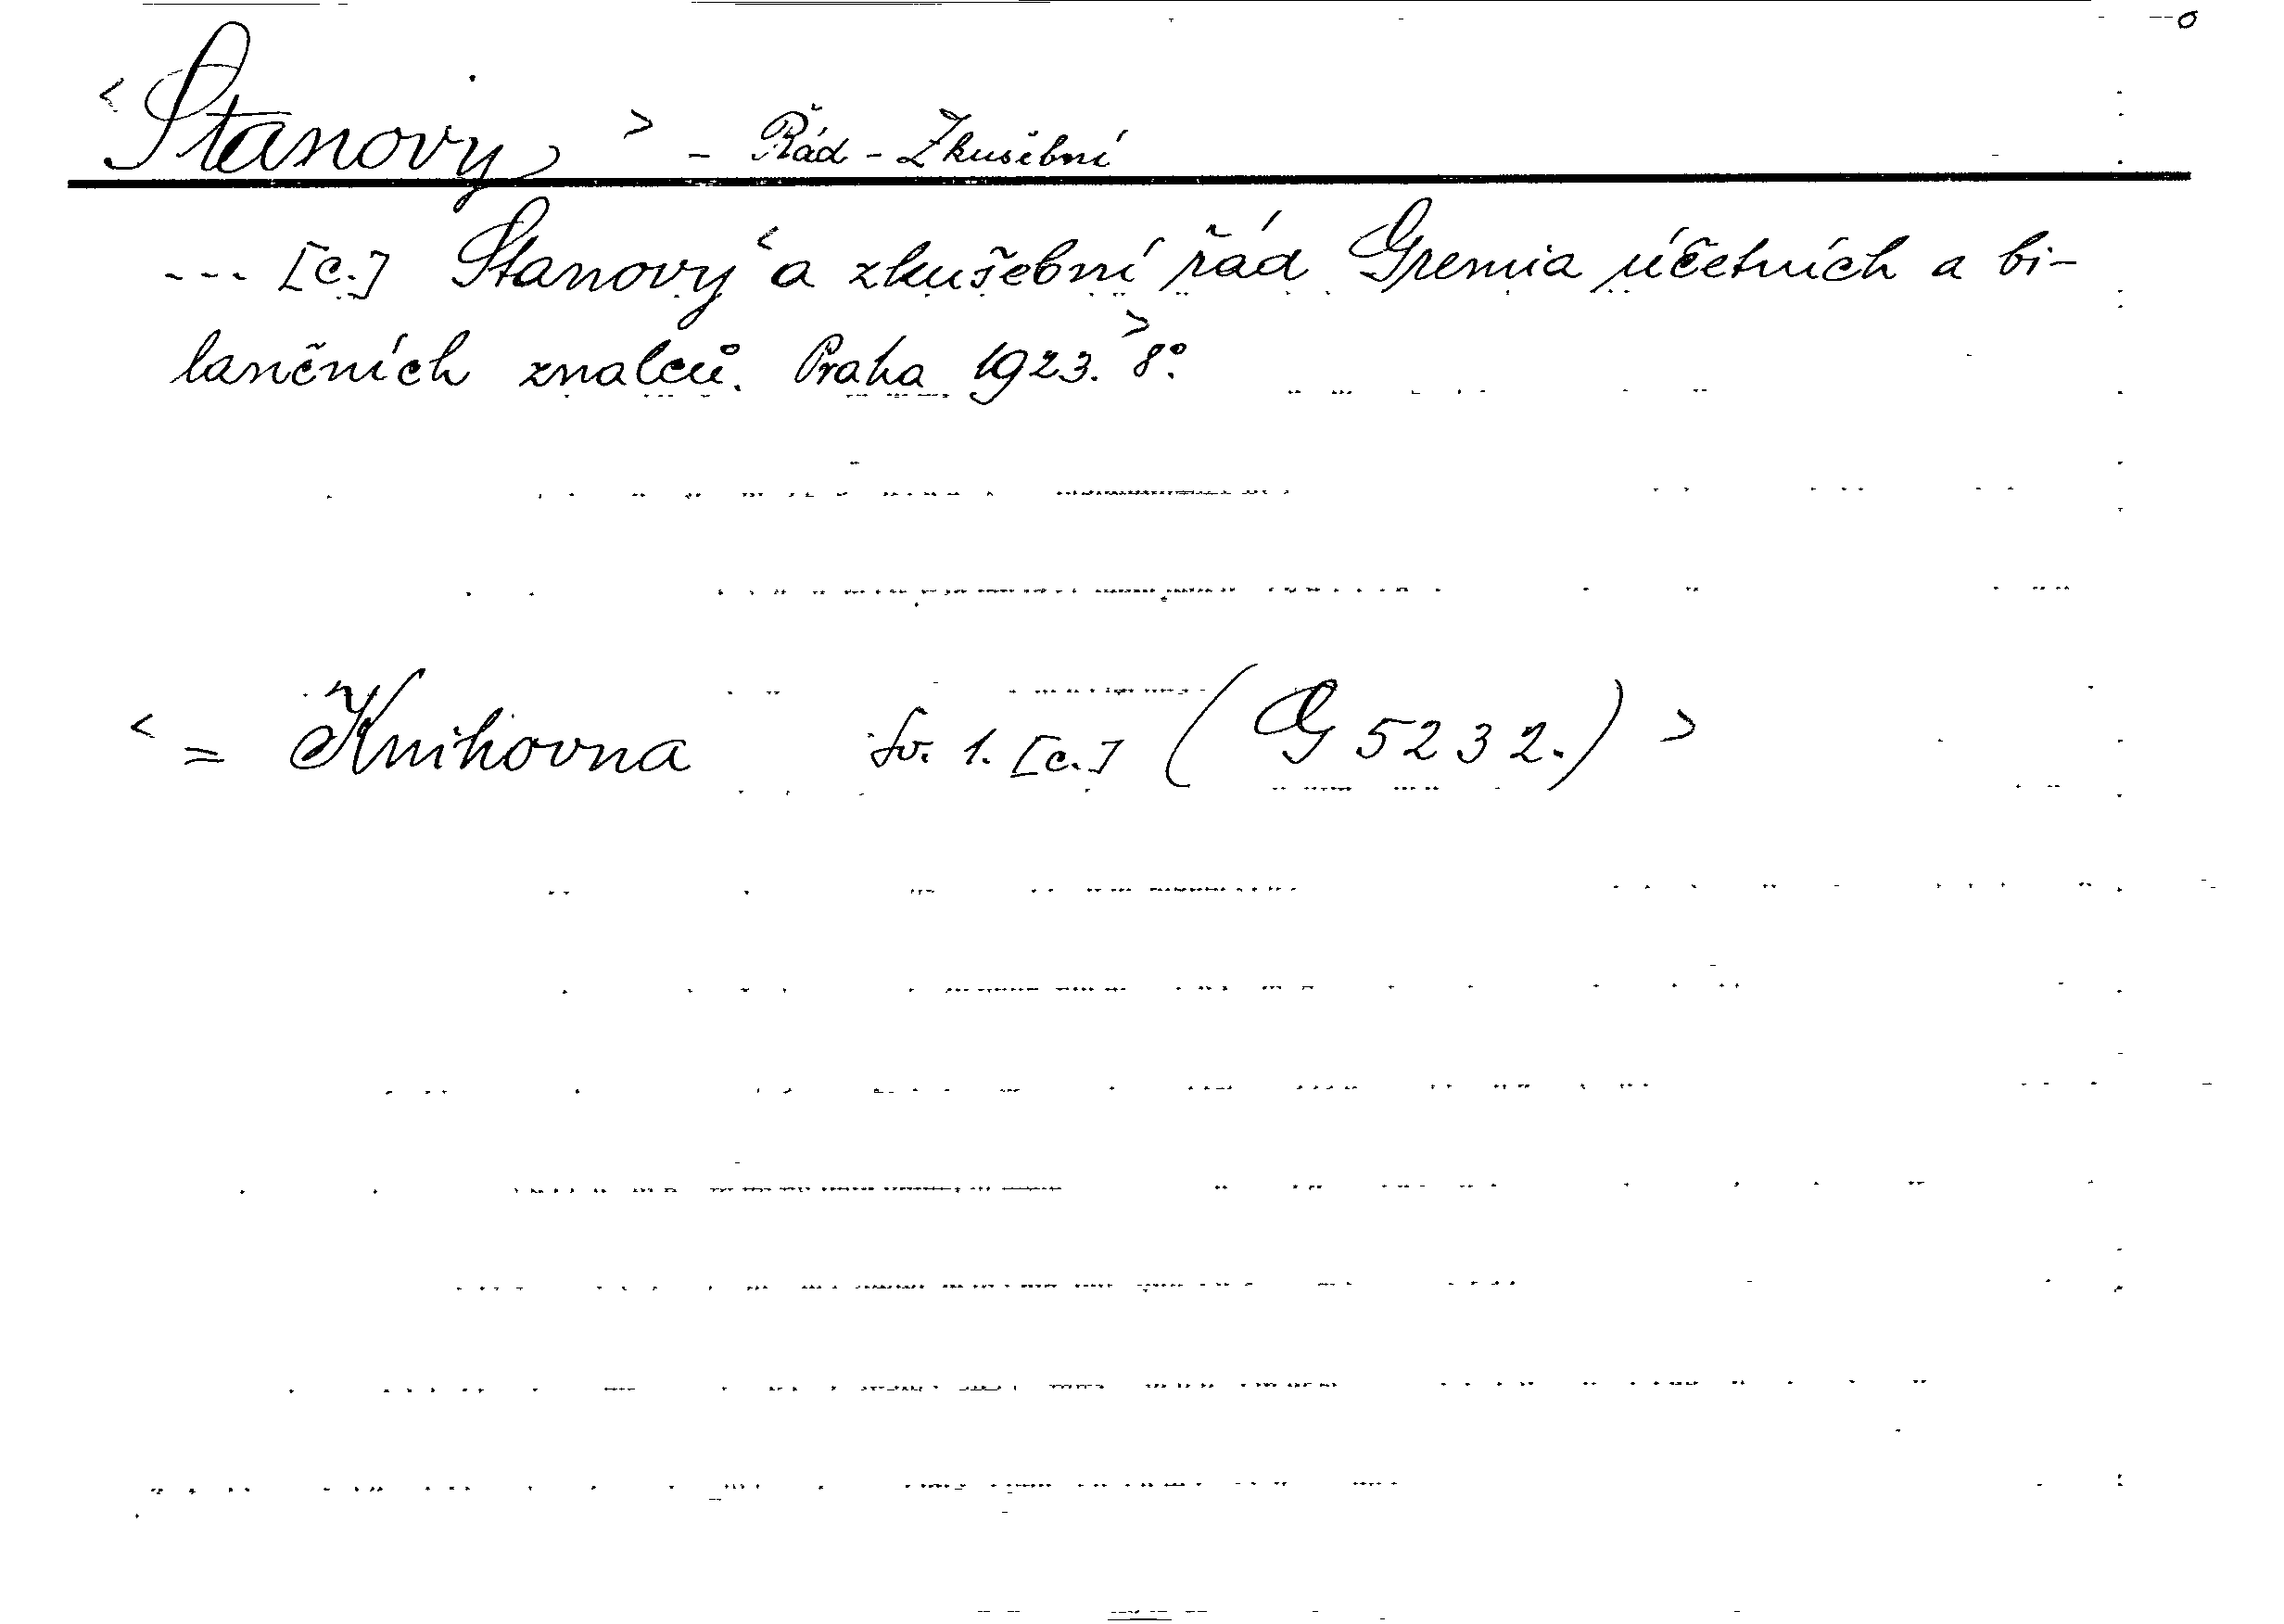 < Stanovy > - Řád - Zkušební
--- [c.] Stanovy < a zkušební řád Gremia účetních a bi-
lančních znalců. Praha 1923. > 8°.
< = Knihovna Sv. 1. [c.] (G 5232.) >